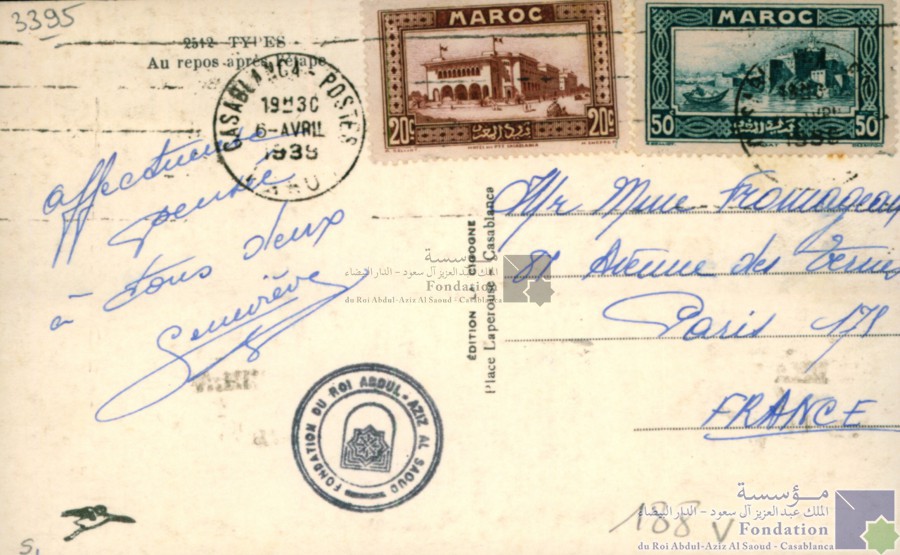 3395
2512 TYPES
Au repos après l'étape
CASABLANCA - POSTES
19H30
6-AVRIL
MAROC
20c
20c
MAROC
50
50
affectueuse
pensée
à tous deux
Geneviève
ÉDITION LA CIGOGNE
Place Laperouse - Casablanca
Mr Mme Fromageau
81 Avenue des Ternes
Paris 17e
FRANCE
مؤسسة
الملك عبد العزيز آل سعود - الدار البيضاء
Fondation
du Roi Abdul-Aziz Al Saoud - Casablanca
FONDATION DU ROI ABDUL-AZIZ AL SAOUD
188 v
مؤسسة
الملك عبد العزيز آل سعود - الدار البيضاء
Fondation
du Roi Abdul-Aziz Al Saoud - Casablanca